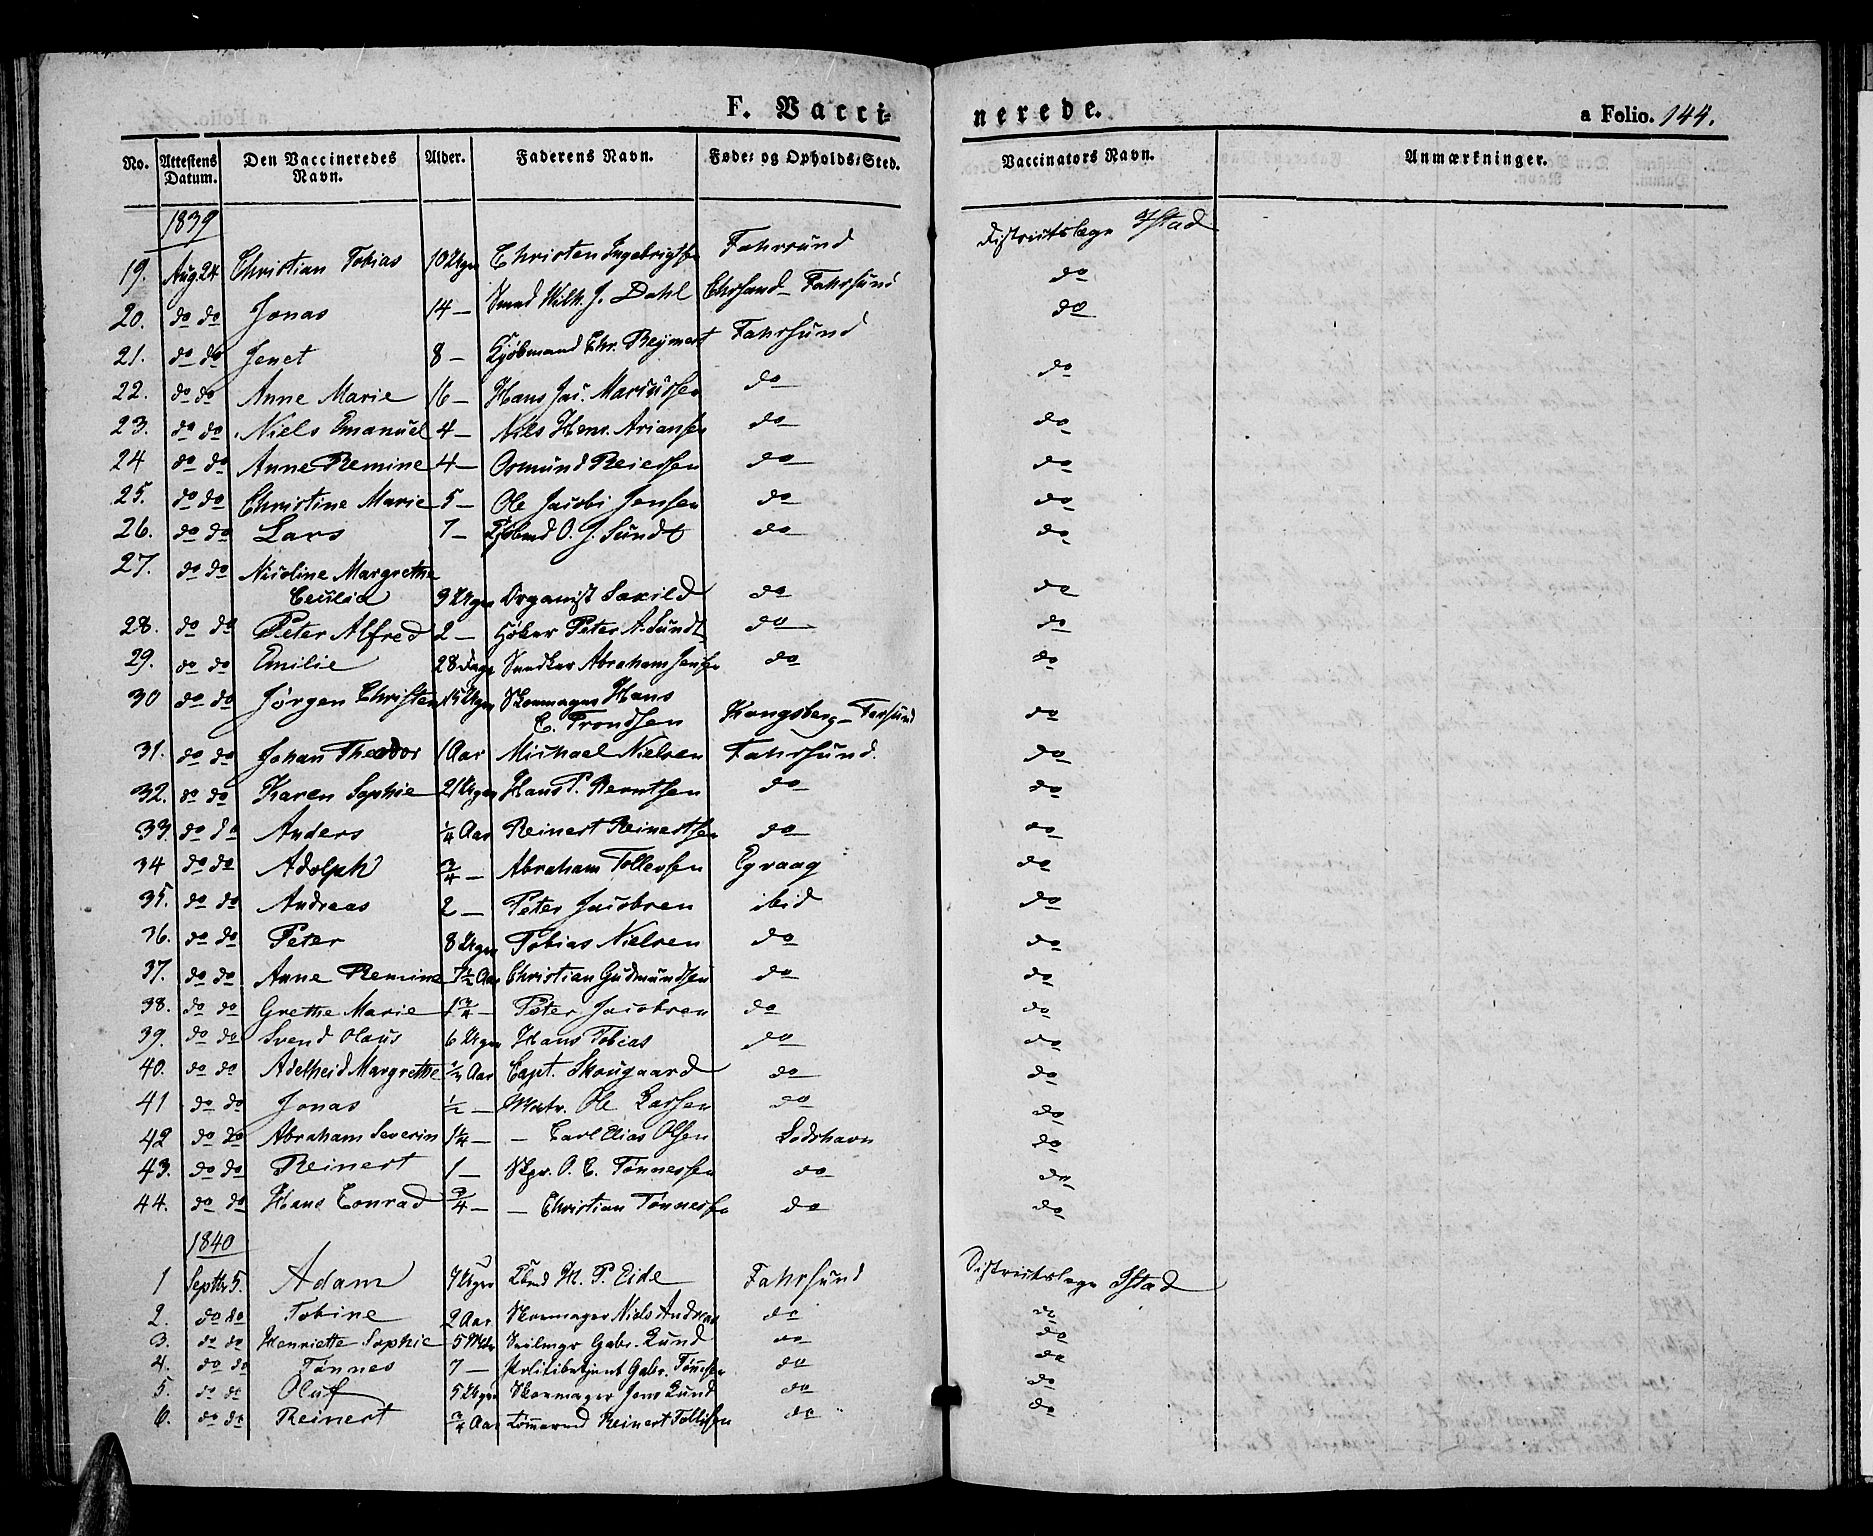 F. Vacci- nerede. a Folio. 144.
No. Attestens Datum. Den Vaccineredes Navn. Alder. Faderens Navn. Føde- og Opholds-Sted. Vaccinators Navn. Anmærkninger.
1839
19. Aug. 24 Christian Tobias 10 Uger Christen Ingebrigtsen Fahrsund Districtslæge Ystad
20. do do Jonas 14 — Smed Wilh. J. Dahl Chrsand - Fahrsund do
21. do do Jenet 8 — Kjøbmand Chr. Reymert Fahrsund do
22. do do Anne Marie 16 — Hans Jac. Marcussen do do
23. do do Niels Emanuel 4 — Nils Henr. Ariansen do do
24 do do Anne Remine 4 — Osmund Reiersen do do
25. do do Christine Marie 5 — Ole Jacobi Jensen do do
26. do do Lars 7 — Kjøbmd O. J. Sundt do do
27. do do Nicoline Margrethe
Cecilia 9 Uger Organist Saxild do do
28. do do Peter Alfred 2 — Høker Peter A. Sundt do do
29. do do Emilie 28 Dage Snedker Abraham Jensen do do
30 do do Jørgen Christen 15 Uger Skomager Hans
C. Trondsen Kongsberg - Farsund do
31. do do Johan Theodor 1 Aar Michael Nielsen Fahrsund. do
32. do do Karen Sophie 21 Uger Hans P. Berntsen do do
33. do do Anders 1/4 Aar Reinert Reinertsen do do
34 do do Adolph 3/4 — Abraham Tollevsen Egvaag do
35. do do Andreas 2 — Peter Jacobsen ibid do
36. do do Peter 8 Uger Tobias Nielsen do do
37. do do Anne Remine 7 1/2 Aar Christian Gudmundsen do do
38. do do Grethe Marie 1 3/4 — Peter Jacobsen do do
39. do do Svend Olaus 6 Uger Hans Tobias do do
40. do do Adelheid Margrethe 1/2 Aar Capt. Skougaard do do
41 do do Jonas 1/2 — Matr. Ole Larsen do do
42 do do Abraham Severin 1 1/4 — — Carl Elias Olsen Loshavn do
43. do do Reinert 1 — Skpr. O. C. Tønnessen do do
44. do do Hans Conrad 3/4 — — Christian Tønnessen do do
1840
1 Septbr 5. Adam 7 Uger Kbmd H. P. Eide Fahrsund Districtslæge Ystad
2. do do Tobine 2 Aar Skomager Niels Andreas do do
3. do do Henriette Sophie 5 Mdr Seilmgr Gabr. Lund do do
4. do do Tønnes 7 — Politibetjent Gabr. Tønnesen do do
5. do do Oluf 5 Uger Skomager Jens Lund do do
6. do do Reinert 3/4 Aar Tømmermd Reinert Tollefsen do do